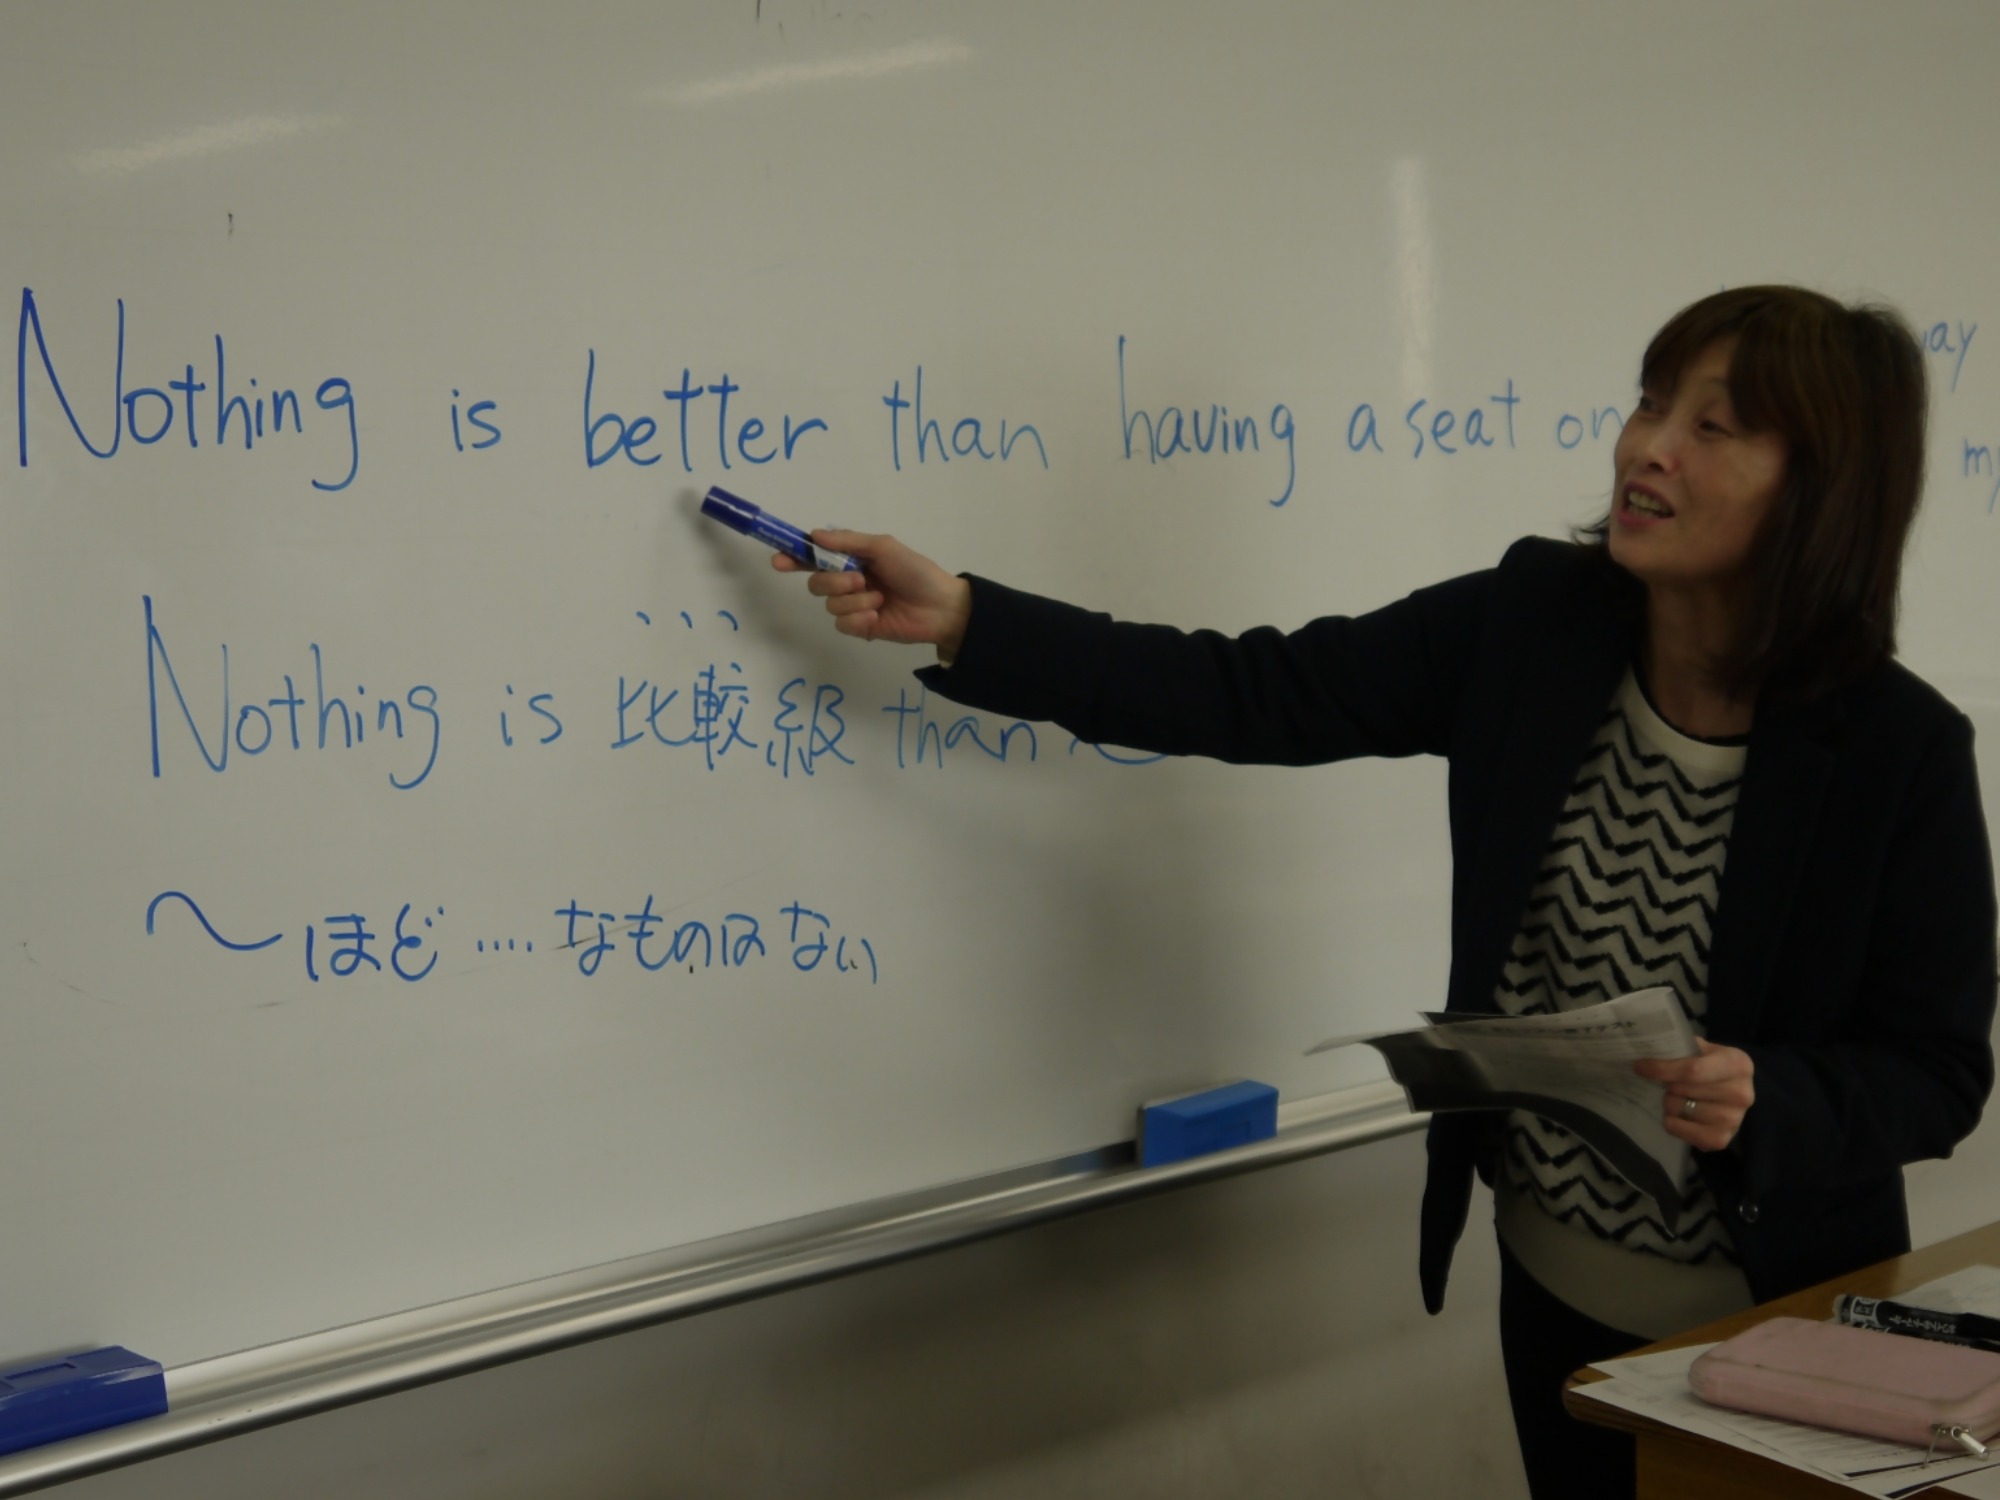 Nothing is better than having a seat on way
my
Nothing is 比較級 than 〜
〜ほど‥‥なものはない